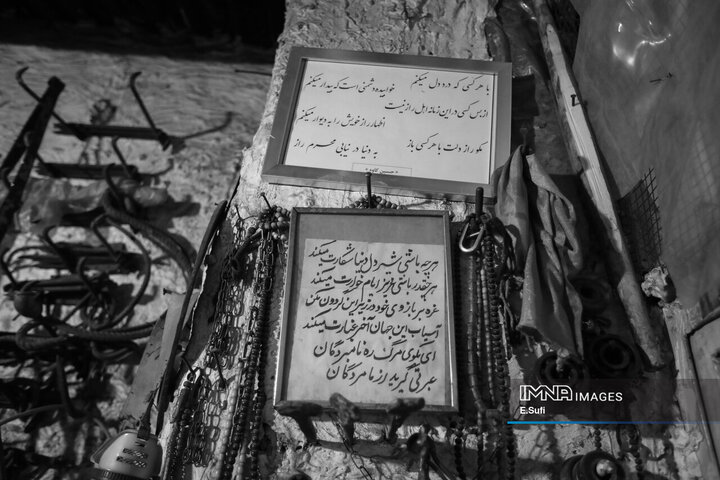 با هر کسی که درد دل میکنم
خوابیده دشمنی است که بیدار میکنم
از بس کسی در این زمانه اهل راز نیست
اظهار راز خویش را به دیوار میکنم
مگو راز دلت هر کسی باز
به دنیا در نیابی محرم راز
هر چه باشی شیر دل دنیا شکارت میکند
هر چقدر باشی عزیز امام خوارت میکند
غره بر بازوی خود در زیر این گردون مکن
آسیاب این جهان آخر غبارت میکند
ای پلوی مرگ ره ما مردگان
عبرتی گیرید از ما مردگان
INNA IMAGES
E.Sufi